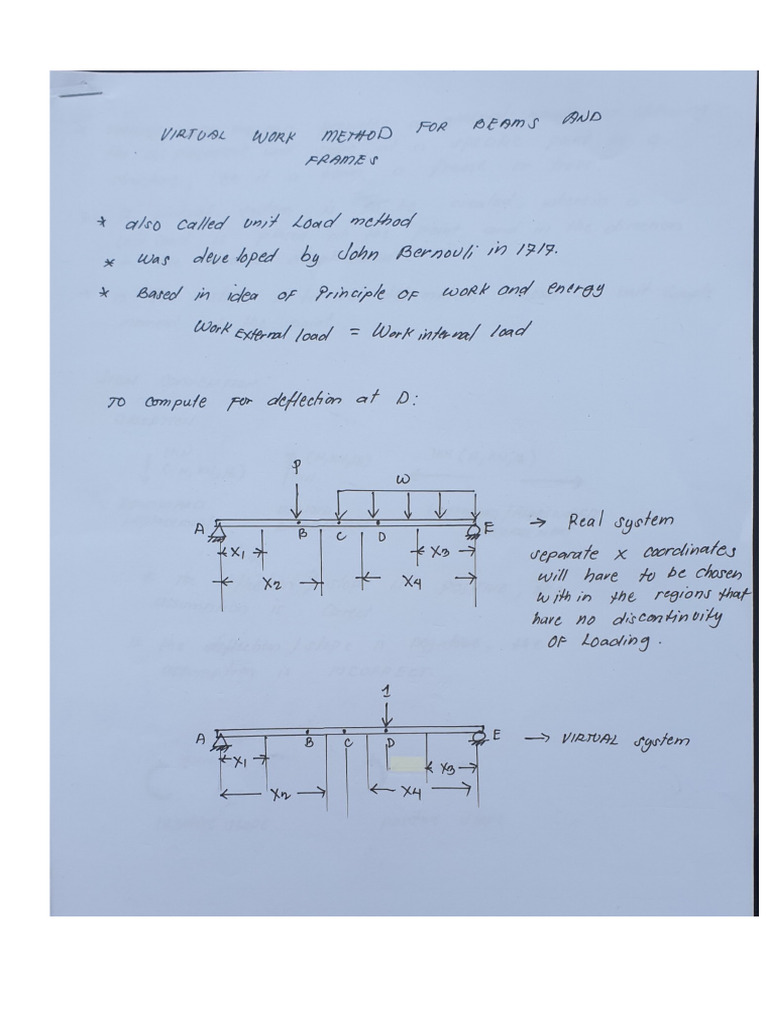 VIRTUAL WORK METHOD FOR BEAMS AND
FRAMES
* also called unit Load method
* was developed by John Bernouli in 1717.
* Based in idea of Principle of work and energy
Work External load = Work internal load
To compute for deflection at D:
P
w
A B C D E
→ Real system
x1 x3
x2 x4
separate x coordinates
will have to be chosen
with in the regions that
have no discontinuity
of Loading.
1
A B C D E → VIRTUAL system
x1 x3
x2 x4